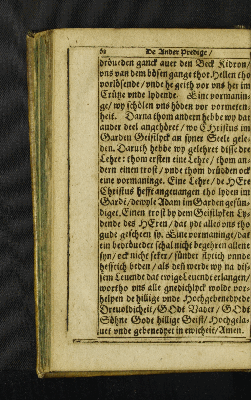 62 De Ander Predige /
dröueden ganck auer den Beck Kidron /
vns van dem bösen gange thor Hellen tho
vorlösende / vnde he geith vor vns her im
Crütze vnde lydende. Eine vormanin-
ge / wy schölen vns höden vor vormeten-
heit. Darna thom andern hebbe wy dat
ander deel angehöret / wo Christus im
Garden Geistlyck an syner Seele gele-
den. Daruth hebbe wy gelehret disse dre
Lehre: thom ersten eine Lehre / thom an-
dern einen trost / vnde thom drüdden ock
eine vormaninge. Eine Lehre / de HEre
Christus hefft angeuangen tho lyden im
Garde / dewyle Adam im Garden gesün-
diget. Einen trost by dem Geistlyken Ly-
dende des HEren / dat ydt alles vns tho
gude gescheen sy. Eine vormaninge / dat
ein bedröueder schal nicht begehren allene
syn / ock nicht seker / sünder
hefftich beden / als denn werde wy na dis-
sem Leuende dat ewige Leuendt erlangen /
wortho vns alle gnedichlyck wolde vor-
helpen de hillige vnde Hochgebenedyede
Dreuoldicheit / GOdt Vader / GOdt
Söhne Godt hillige Geist / Hochgela-
uet vnde gebenedyet in ewicheit / Amen.